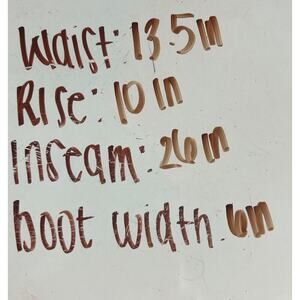 Waist: 13.5in
Rise: 10in
Inseam: 26in
boot width. 6in